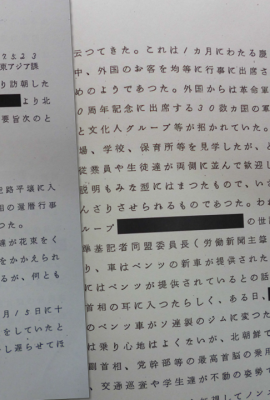 東アジア課
り訪朝した
より北
要旨次のと
路平壌に入
相の還暦行事
つた。
達が花束をく
をかかえられ
るが、何とも
月15日に十
をしていたと
し遅らせてほ
云つてきた。これは1カ月にわたる慶
中、外国のお客を均等に行事に出席さ
めのようであつた。外国からは革命軍
0周年記念に出席する30数カ国の軍
と文化人グループ等が招かれていた。
場、学校、保育所等を見学したが、と
従業員や生徒達が両側に並んで歓迎し
説明もみな型にはまつたもので、い
んざりさせられるものであつた。われ
ループ の世
準基記者同盟委員長(労働新聞主筆
り、車はベンツの新車が提供された
にはベンツが提供されているとの話
首相の耳に入つたらしく、ある日、
のベンツ車がソ連製のジムに変つた
は乗り心地はよくないが、北朝鮮で
副首相、党幹部等の最高首脳の乗用
、交通巡査や学生達が不動の姿勢で